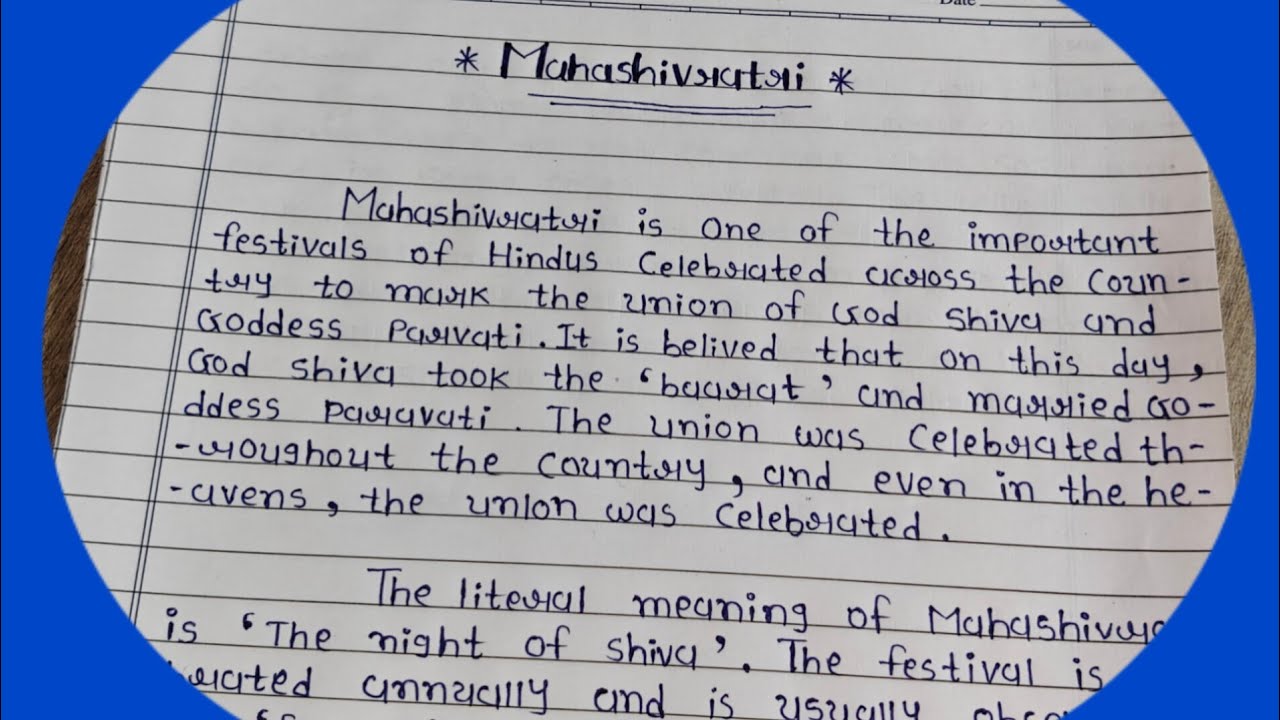 Date
* Mahashivratri *
Mahashivratri is one of the important
festivals of Hindus Celebrated across the Coun-
try to mark the union of God Shiva and
Goddess Parvati. It is belived that on this day,
God Shiva took the 'baarat' and married Go-
ddess Paravati. The union was Celebrated th-
-roughout the Country, and even in the he-
-avens, the union was Celebrated.
The literal meaning of Mahashivra
is 'The night of Shiva'. The festival is
rated annually and is usually obse